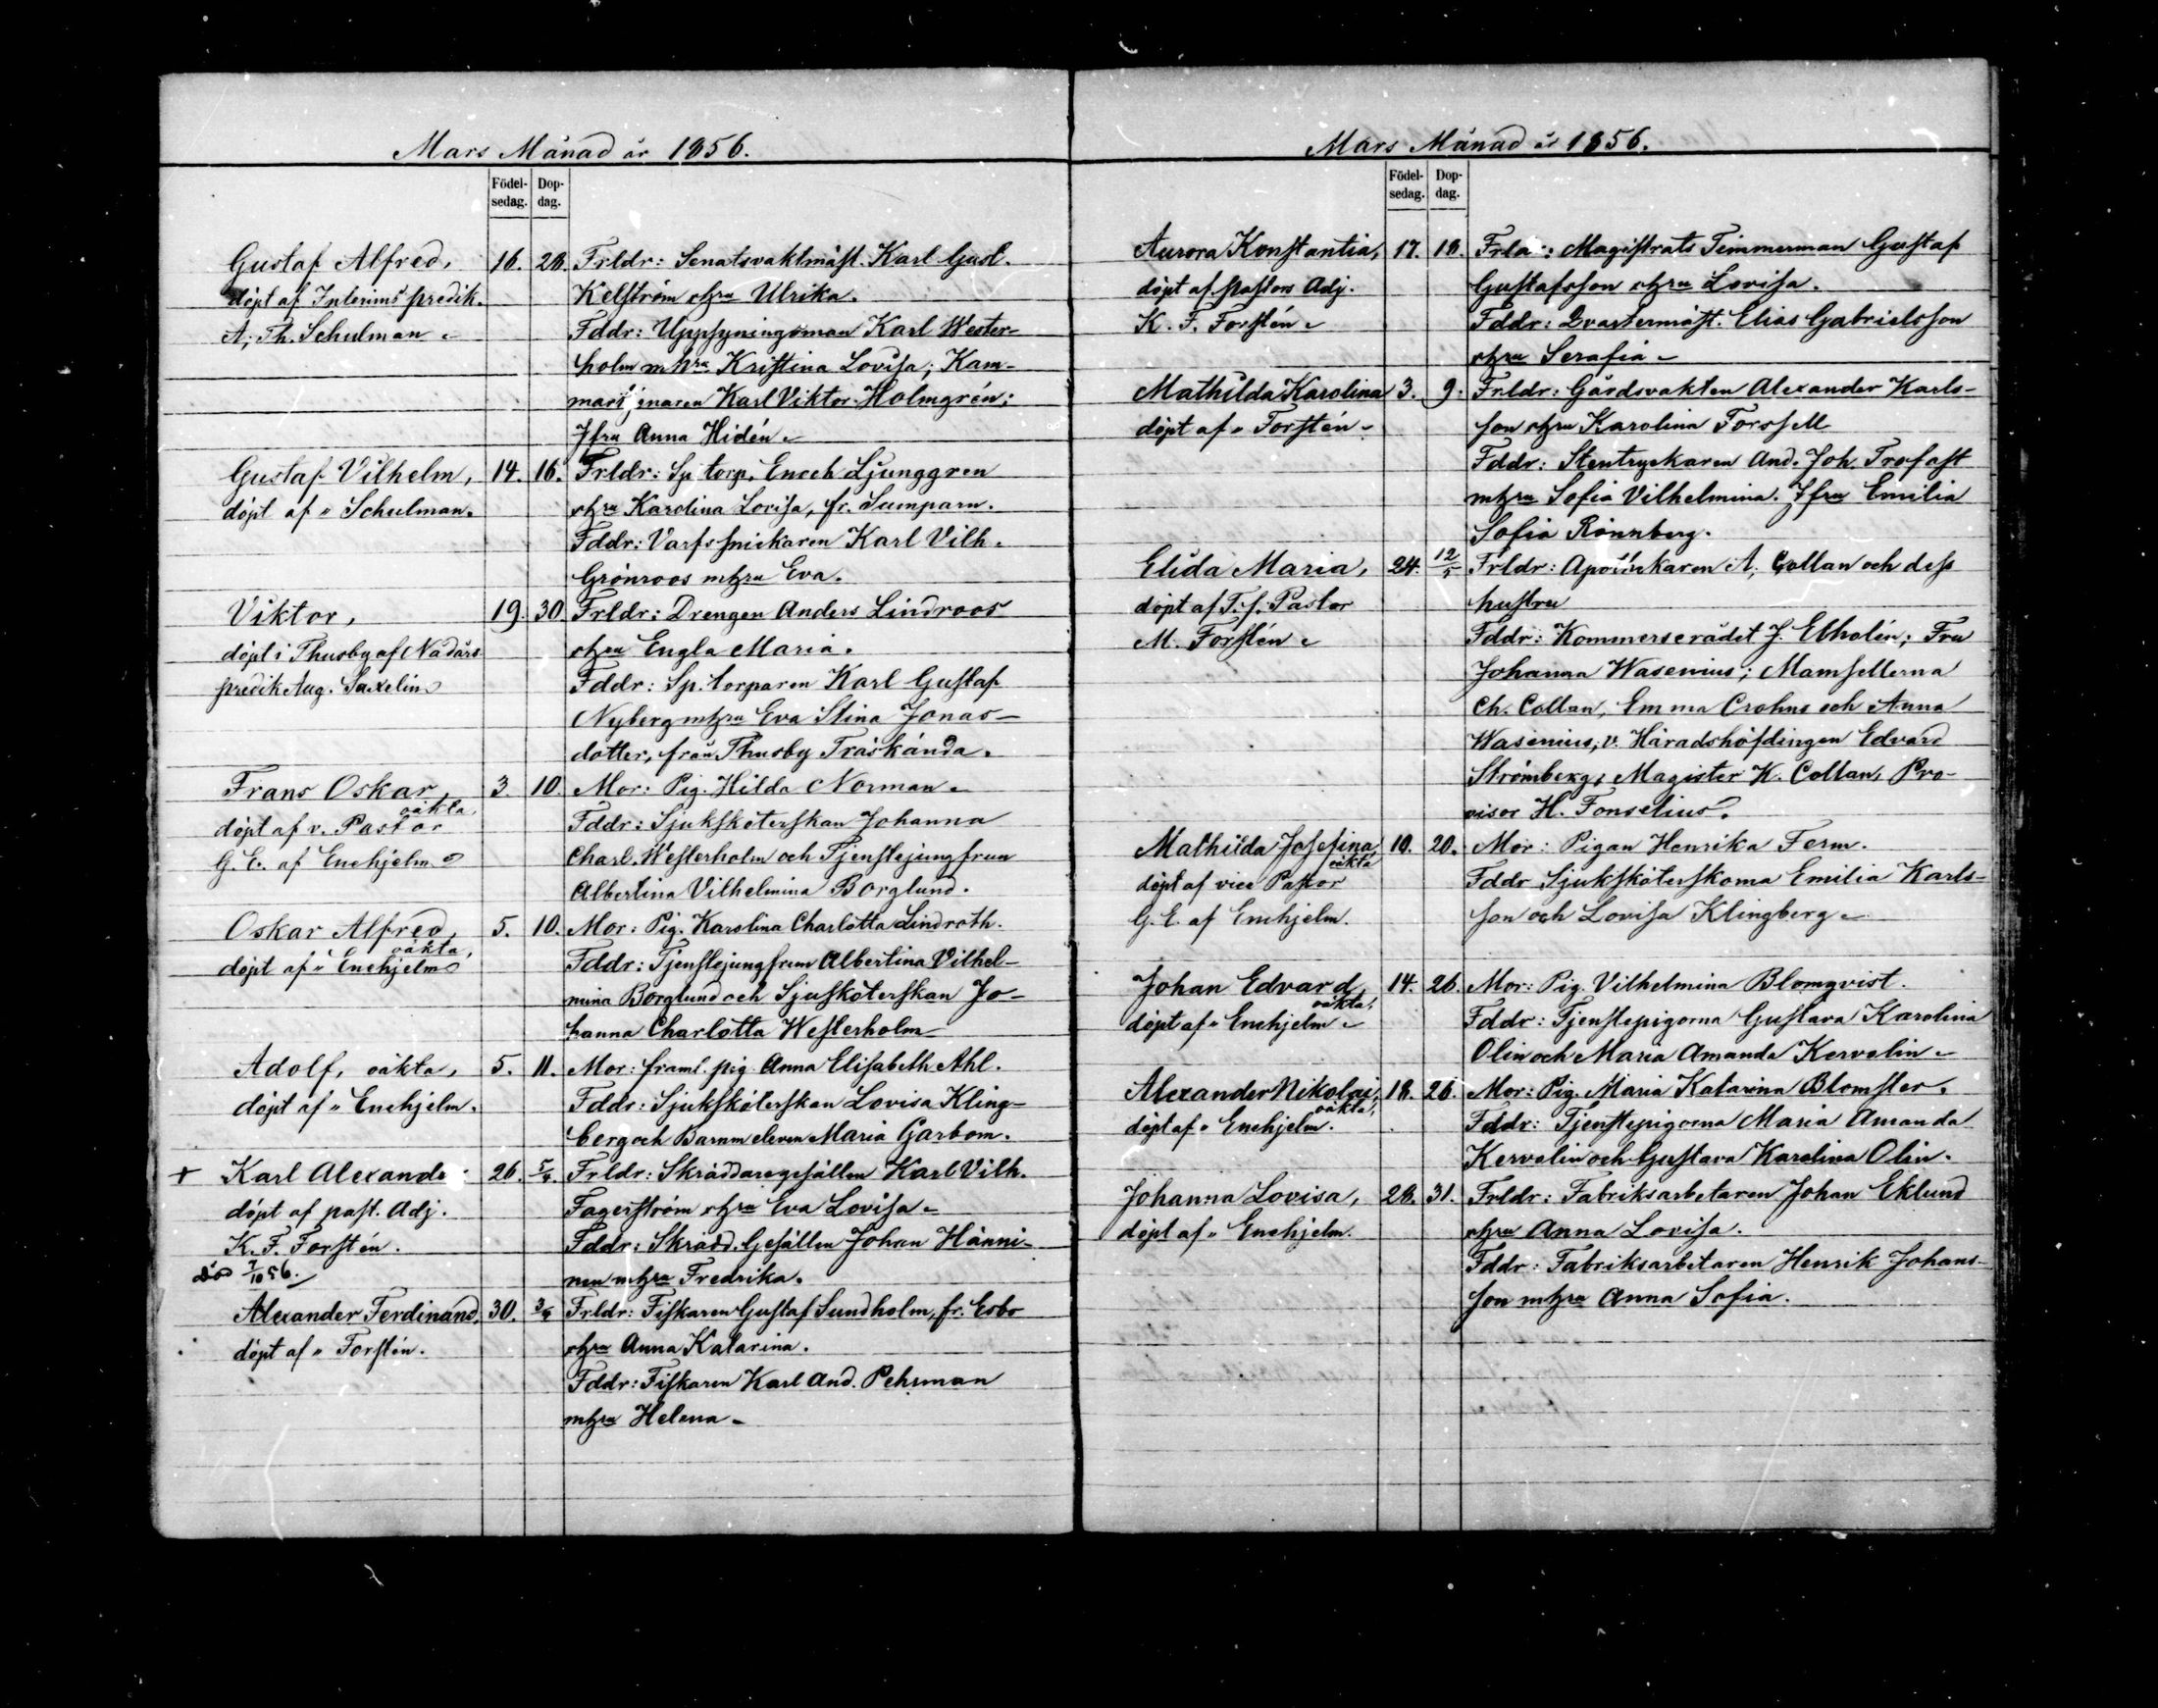 Mars Månad år 1856.
Födel-
sedag.
Dop-
dag.
Gustaf Alfred, 16. 28. Frldr: Senatsvaktmäst. Karl Gust.
döpt af Interims predik. Kelström o. hru Ulrika.
A. Th. Schulman Fddr: Uppsyningsman Karl Wester-
holm m. hru Kristina Lovisa; Kam-
martjenaren Karl Viktor Holmgrén;
Jfru Anna Hidén.
Gustaf Vilhelm, 14. 16. Frldr: Sp. torp. Enoch Ljunggren
döpt af " Schulman. o. hru Karolina Lovisa, fr. Sumparn.
Fddr: Varfssnickaren Karl Vilh.
Grönroos m. hru Eva.
Viktor, 19. 30. Frldr: Drengen Anders Lindroos
döpt i Thusby af Nådårs o. hru Engla Maria.
predik Aug. Saxelin Fddr: Sp. torparen Karl Gustaf
Nyberg m. hru Eva Stina Jonas-
dotter, från Thusby Träskända.
Frans Oskar, 3. 10. Mor: Pig. Hilda Norman
oäkta,
döpt af v. Pastor Fddr: Sjuksköterskan Johanna
G. E. af Enehjelm Charl. Westerholm och Tjenstejungfrun
Albertina Vilhelmina Borglund.
Oskar Alfred, 5. 10. Mor: Pig. Karolina Charlotta Lindroth.
oäkta,
döpt af " Enehjelm Fddr: Tjenstejungfrun Albertina Vilhel-
mina Borglund och Sjusköterskan Jo-
hanna Charlotta Westerholm
Adolf, oäkta, 5. 11. Mor: framl. pig. Anna Elisabeth Ahl.
döpt af " Enehjelm. Fddr: Sjuksköterskan Lovisa Kling-
berg och Barnm eleven Maria Garbom.
+ Karl Alexande 26. 5/4. Frldr: Skräddaregesällen Karl Vilh.
döpt af past. Adj. Fagerström o. hru Eva Lovisa
K. F. Forstén. Fddr: Skrädd. Gesällen Johan Hänni-
död 7/10 56. nen m. hru Fredrika.
Alexander Ferdinand, 30. 3/4 Frldr: Fiskaren Gustaf Sundholm, fr. Esbo
döpt af " Forstén. o. hru Anna Katarina.
Fddr: Fiskaren Karl And. Pehrman
m. hru Helena
Mars Månad år 1856.
Födel-
sedag.
Dop-
dag.
Aurora Konstantia, 17. 18. Frla : Magistrats Timmerman Gustaf
döpt af pastors Adj. Gustafsson o. hru Lovisa.
K. F. Forstén Fddr: Qvartermäst. Elias Gabrielsson
o. hru Serafia
Mathilda Karolina 3. 9. Frldr: Gårdsvakten Alexander Karls-
döpt af " Forstén son o. hru Karolina Forssell
Fddr: Stentryckaren And. Joh. Trofast
m. hru Sofia Vilhelmina. Jfru Emilia
Sofia Rönnberg.
Elida Maria, 24. 12/5 Frldr: Apothekaren A. Collan och dess
döpt af T. f. Pastor hustru
M. Forstén Fddr: Kommerserådet J. Etholén; Fru
Johanna Wasenius; Mamsellerna
Ch. Collan, Emma Crohns och Anna
Wasenius, v. Häradshöfdingen Edvard
Strömberg, Magister K. Collan, Pro-
visor H. Fonselius.
Mathilda Josefina, 10. 20. Mor: Pigan Henrika Ferm.
oäkta
döpt af vice Pastor Fddr Sjuksköterskorna Emilia Karls-
G. E. af Enehjelm. son och Lovisa Klingberg
Johan Edvard, 14. 26. Mor: Pig. Vilhelmina Blomqvist.
oäkta,
döpt af " Enehjelm Fddr: Tjenstepigorna Gustava Karolina
Olin och Maria Amanda Kervelin
Alexander Nikolai, 18. 26. Mor: Pig. Maria Katarina Blomster.
oäkta,
döpt af " Enehjelm. Fddr: Tjenstepigorna Maria Amanda
Kervelin och Gustava Karolina Olin.
Johanna Lovisa, 28. 31. Frldr: Fabriksarbetaren Johan Eklund
döpt af " Enehjelm. o. hru Anna Lovisa.
Fddr: Fabriksarbetaren Henrik Johans-
son m. hru Anna Sofia.